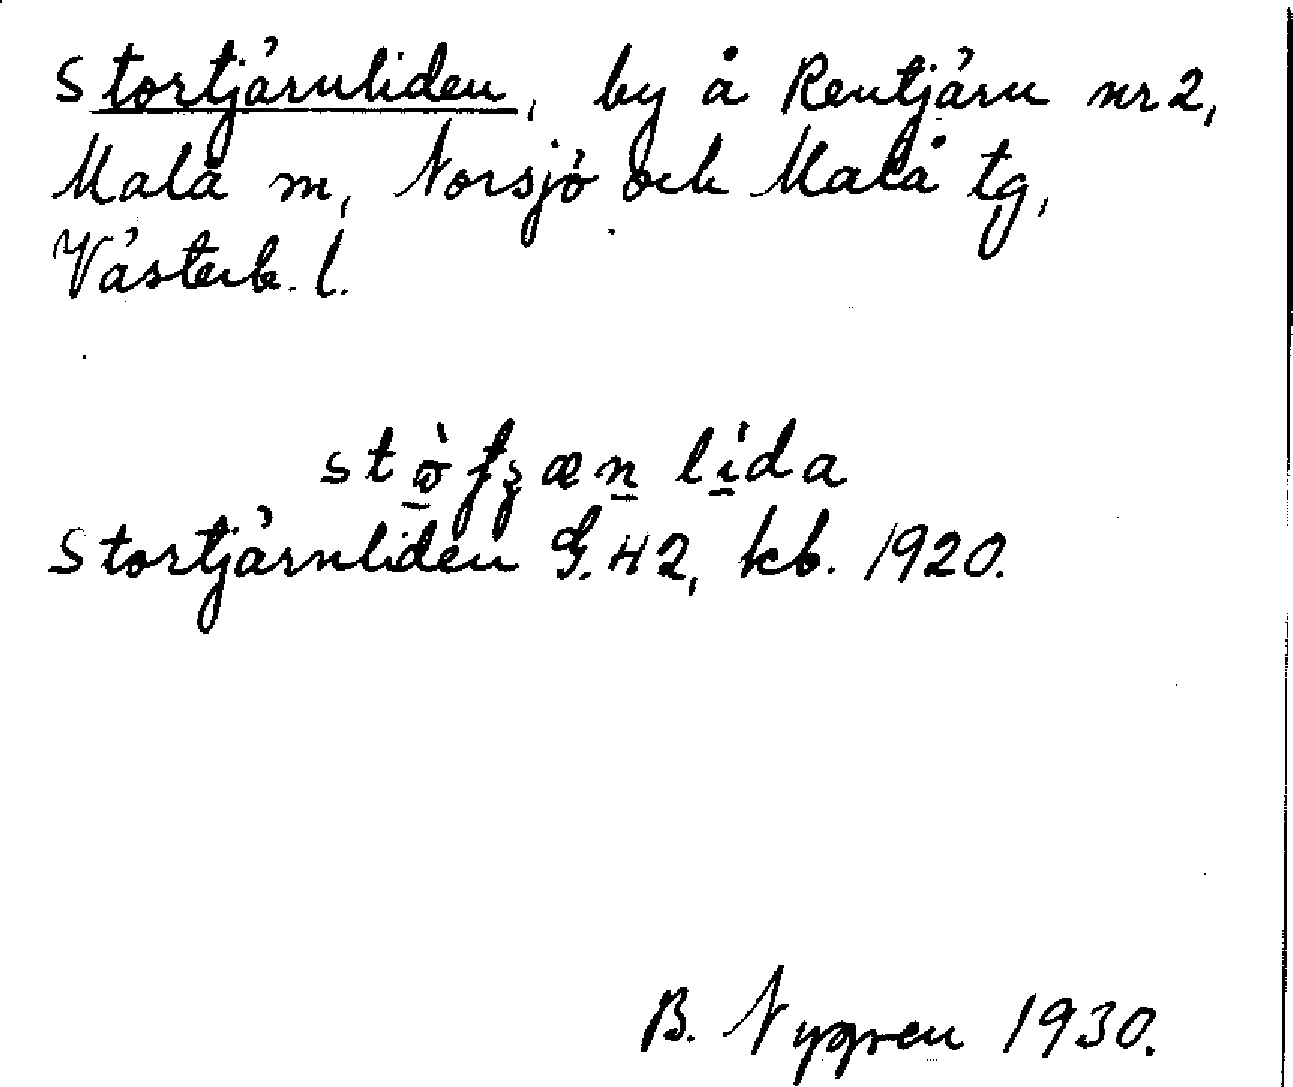 Stortjärnliden, by å Rentjärn nr 2,
Malå m, Norsjö och Malå tg,
Västerb. l.
lída
Stortjärnliden G. 42, kb. 1920.
B. Nygren 1930.